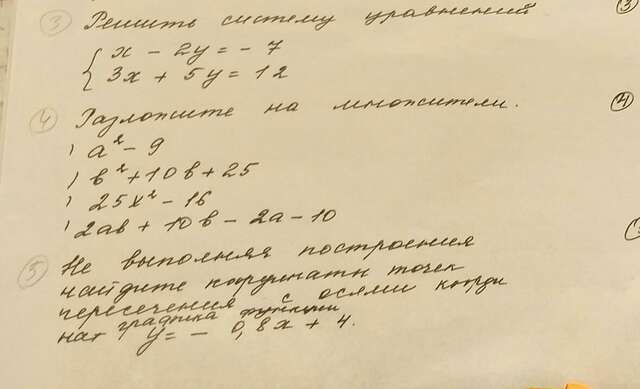 ③ Решить систему уравнений
{ x - 2y = - 7
3x + 5y = 12
④ Разложите на множители.
) a² - 9
) b² + 10b + 25
) 25x² - 16
) 2ab + 10b - 2a - 10
⑤ Не выполняя построения
найдите координаты точек
пересечения с осями коорди
нат графика функции
y = - 0,8x + 4.
③
④